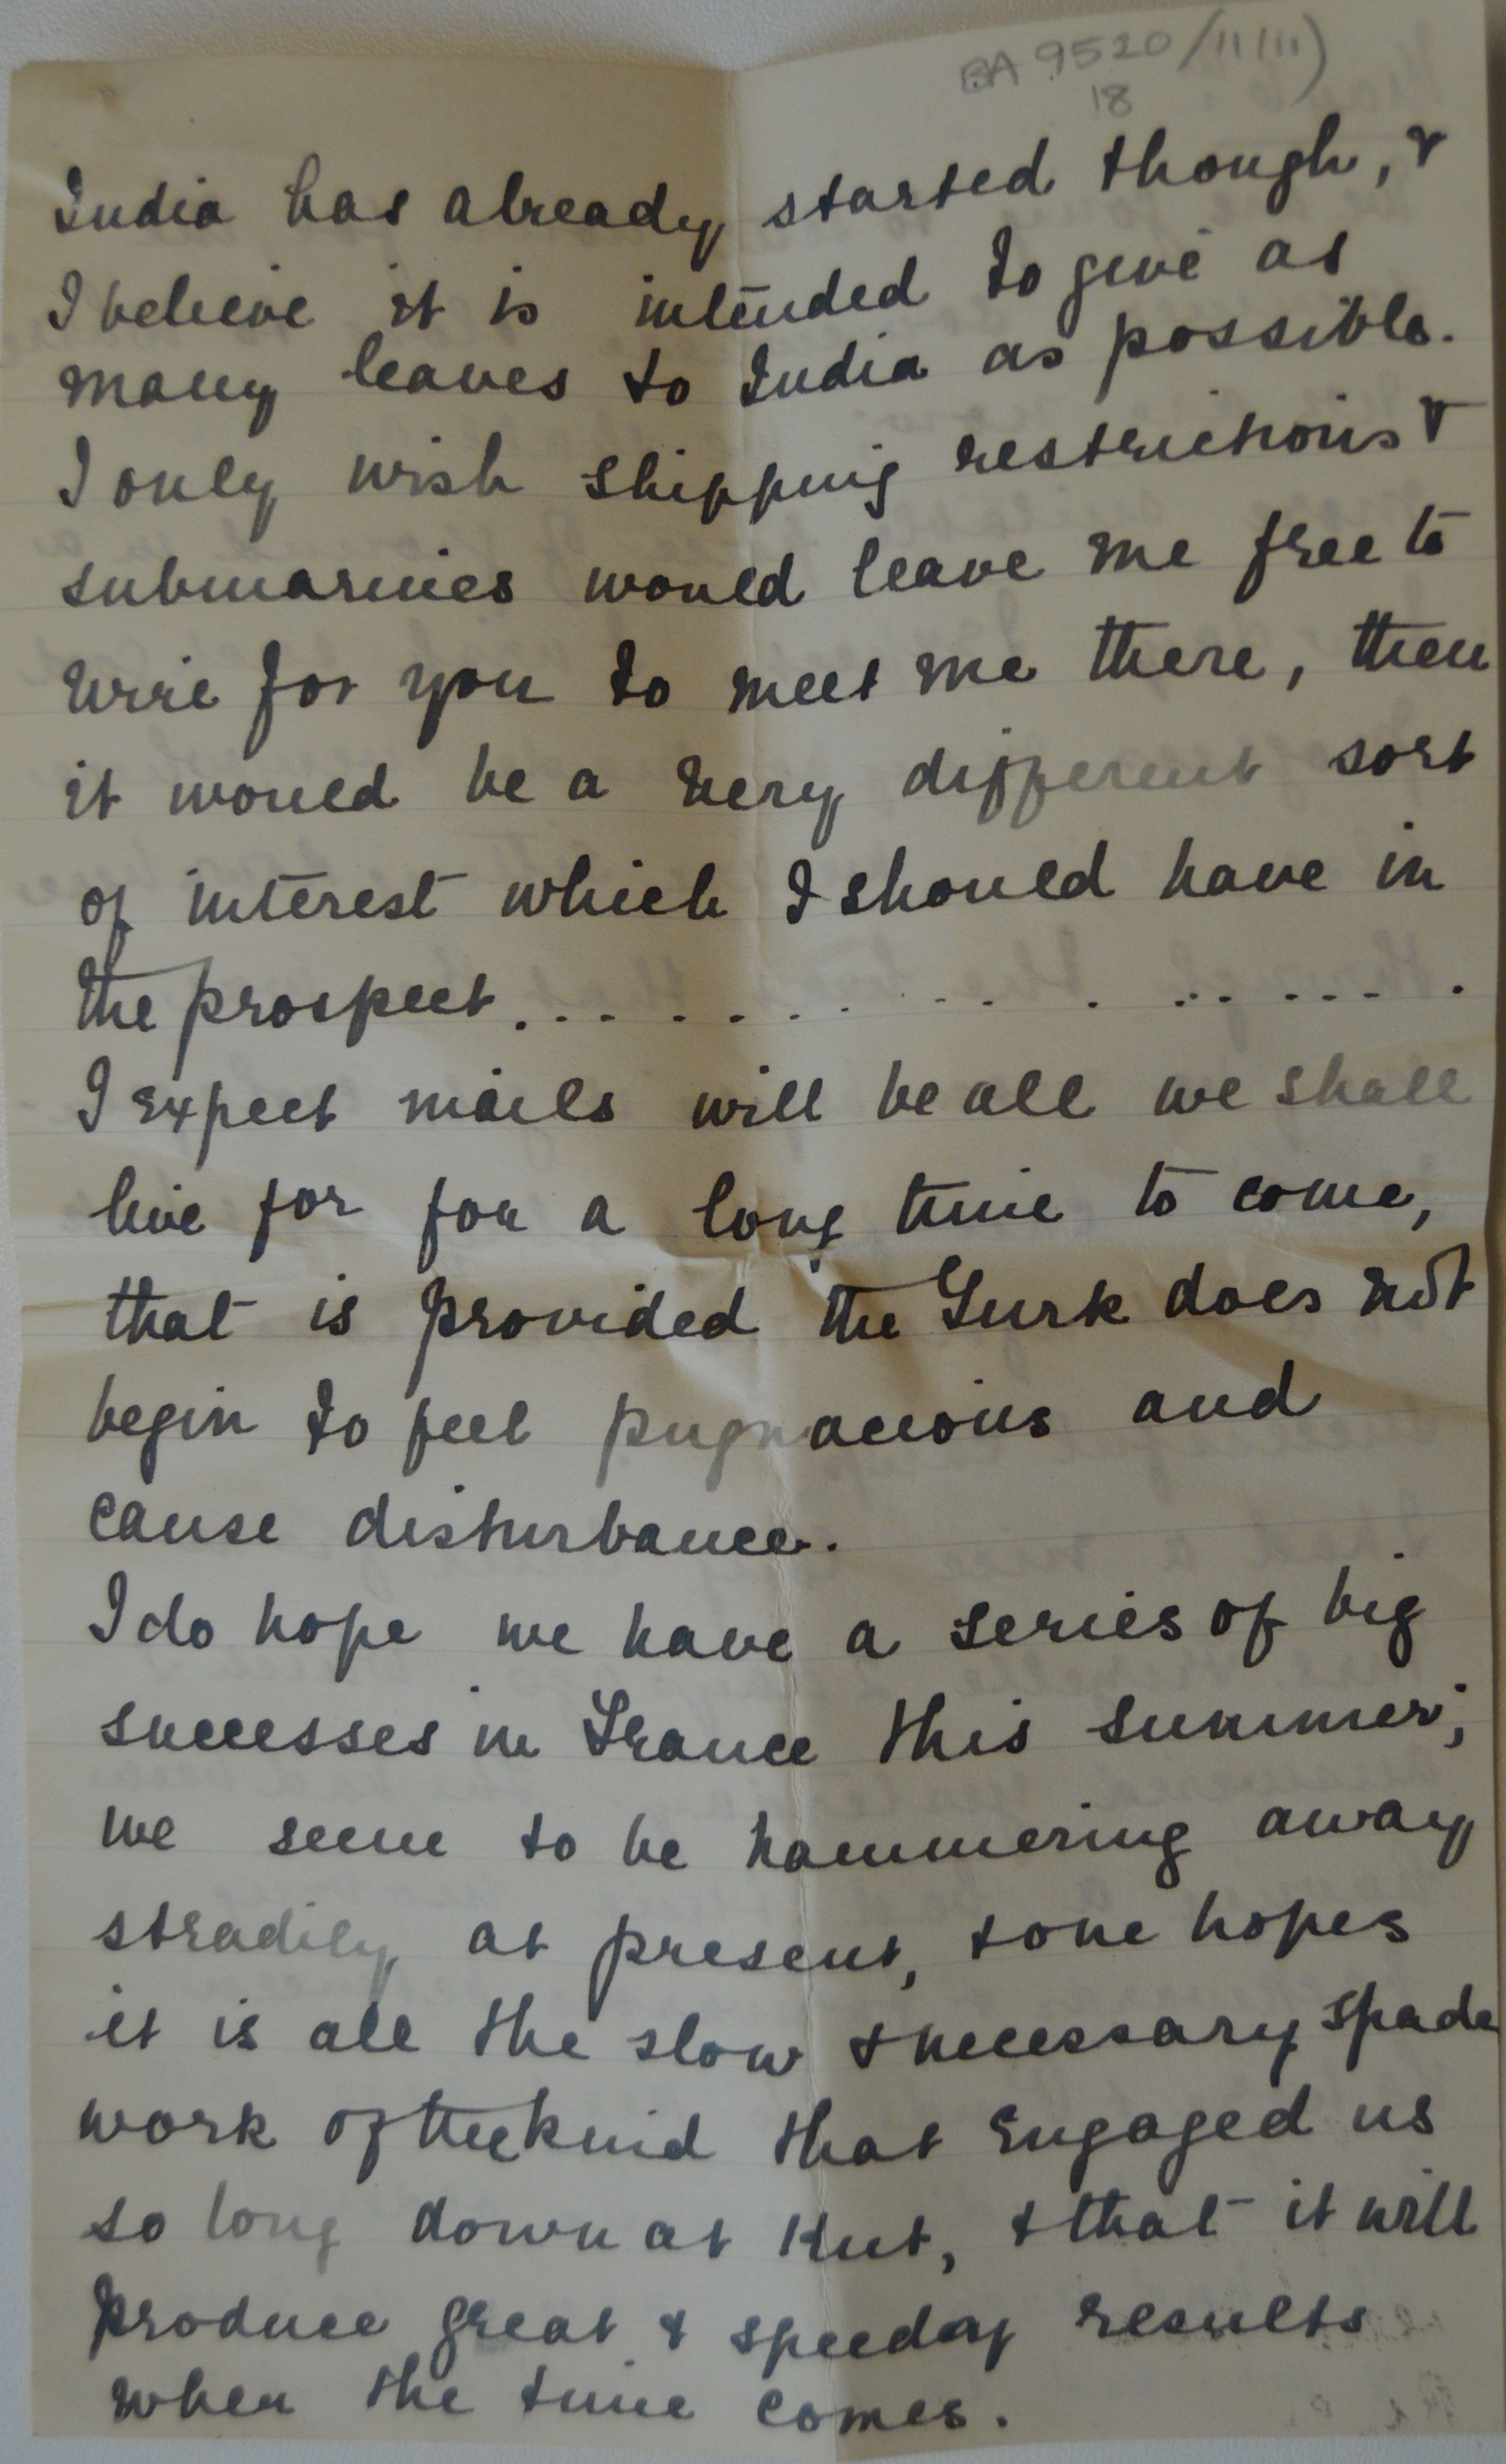 BA 9520/11/11)
18
India has already started though, &
I believe it is intended to give as
many leaves to India as possible.
I only wish shipping restrictions &
submarines would leave me free to
wire for you to meet me there, then
it would be a very different sort
of interest which I should have in
the prospect. . . . . . . . . . . . . . . . .
I expect mails will be all we shall
live for for a long time to come,
that is provided the Turk does not
begin to feel pugnacious and
cause disturbance.
I do hope we have a series of big
successes in France this summer;
we seem to be hammering away
steadily at present, & one hopes
it is all the slow & necessary spade
work of the kind that engaged us
so long down at Kut, & that it will
produce great & speedy results
when the time comes.